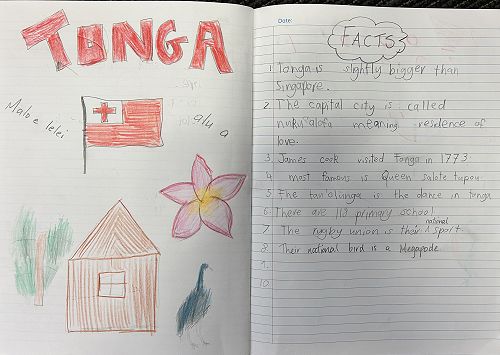 TONGA
Malo e lelei
alu a
Date:
FACTS
1. Tonga is slightly bigger than
Singapore.
2. The capital city is called
nuku'alofa meaning residence of
love.
3. James cook visited Tonga in 1773
4. most famous is Queen salote tupou
5. The tau'olunga is the dance in tonga
6. There are 113 primary school
7. The rugby union is their national sport
8. Their national bird is a Megapode
9.
10.